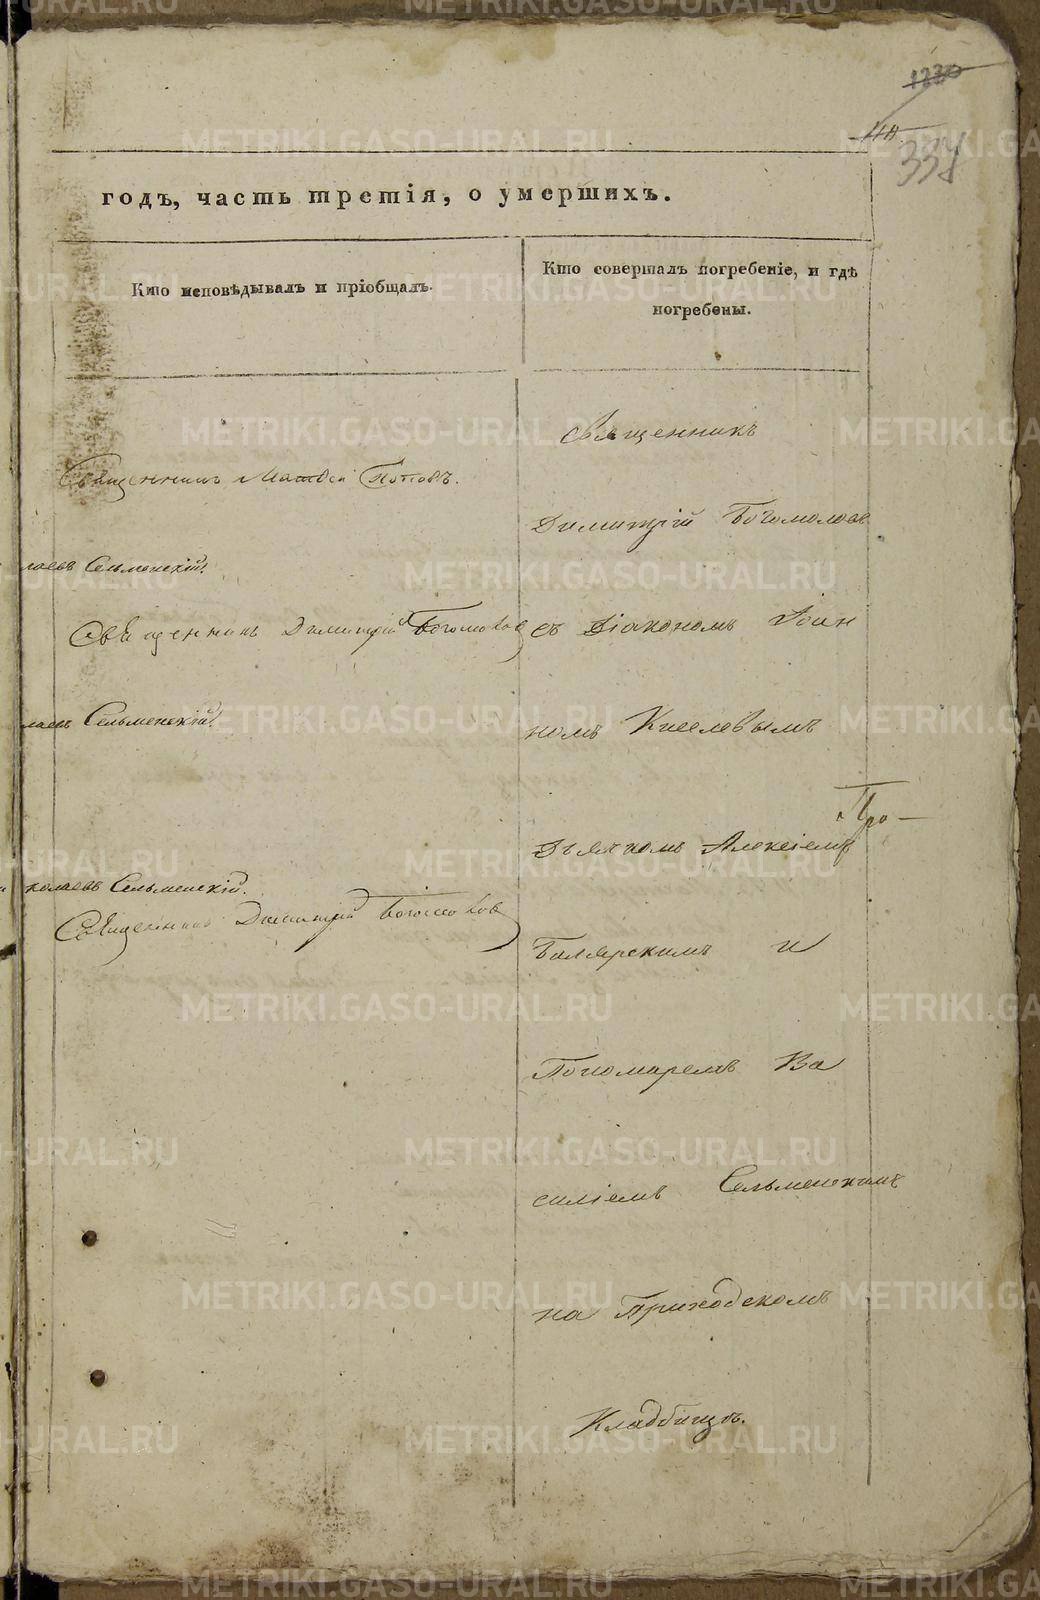 1230
110
338
годъ, часть третія, о умершихъ.
Кто исповѣдывалъ и пріобщалъ.
Кто совершалъ погребеніе, и гдѣ
погребены.
Священникъ
Священникъ Матвей Поповъ.
Димитрій Богомоловъ
лаевъ Сельменскій.
Священникъ Димитрій Богомоловъ
съ Діакономъ Іоан
лаевъ Сельменскій.
номъ Киселевымъ
Про-
Дьячкомъ Алексіемъ
колаевъ Сельменскій.
Священникъ Димитрій Богомоловъ
Балярскимъ и
Пономаремъ Ва
силіемъ Сельменскимъ
на Приходскомъ
Кладбищѣ.
METRIKI.GASO-URAL.RU